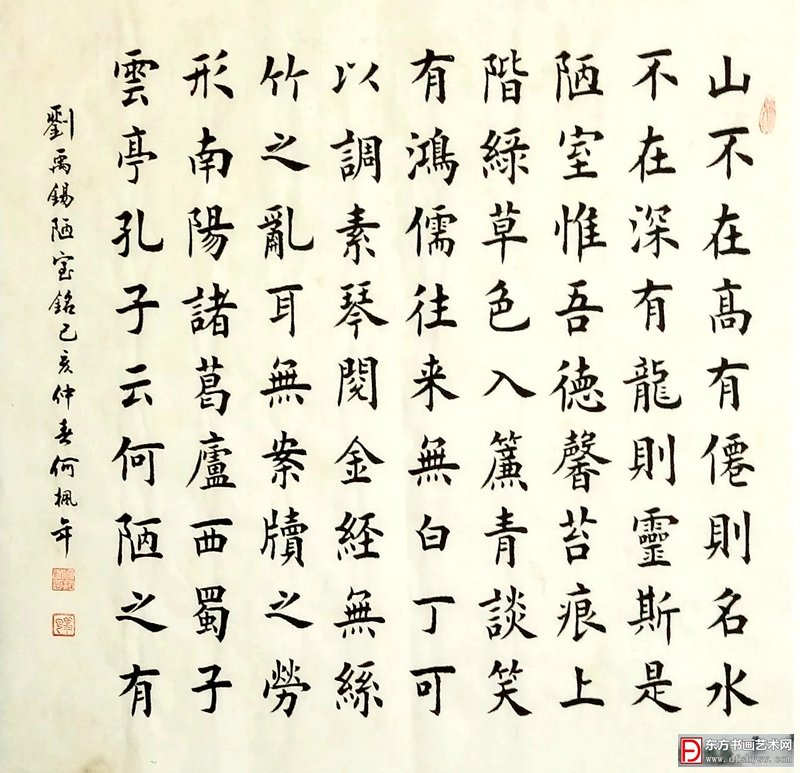 山不在高有僊則名水
不在深有龍則靈斯是
陋室惟吾德馨苔痕上
階綠草色入簾青談笑
有鴻儒往来無白丁可
以調素琴閱金経無絲
竹之亂耳無案牘之勞
形南陽諸葛廬西蜀子
雲亭孔子云何陋之有
劉禹錫陋室銘己亥仲春何楓年
东方书画艺术网
www.dfshysw.com